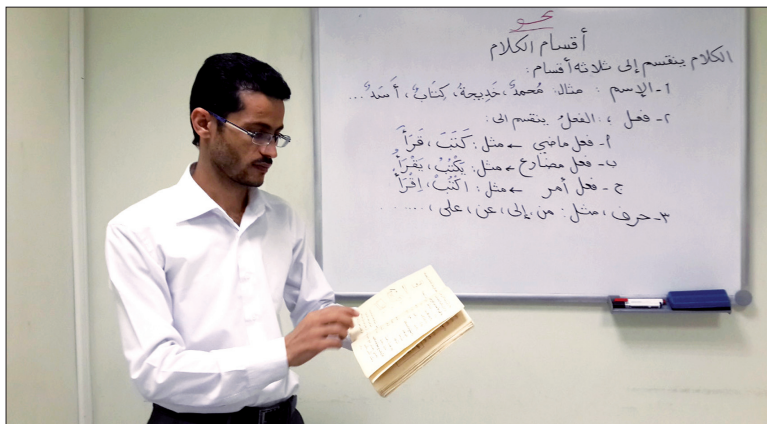 نحو
أقسام الكلام
الكلام ينقسم إلى ثلاثة أقسام:
١- الإسم : مثال: مُحمدٌ، خَدِيجةُ، كِتَابٌ، أَسَدٌ...
٢- فعل ، : الفعلُ ينقسم الى:
أ- فعل ماضي ← مثل: كَتَبَ، قَرَأَ
ب- فعل مضارع ← مثل: يَكْتُبُ، يَقْرَأُ
ج - فعل أمر ← مثل: اكْتُبْ، اقْرَأْ
٣- حرف، مثل: من، إلى، عن، على، ......